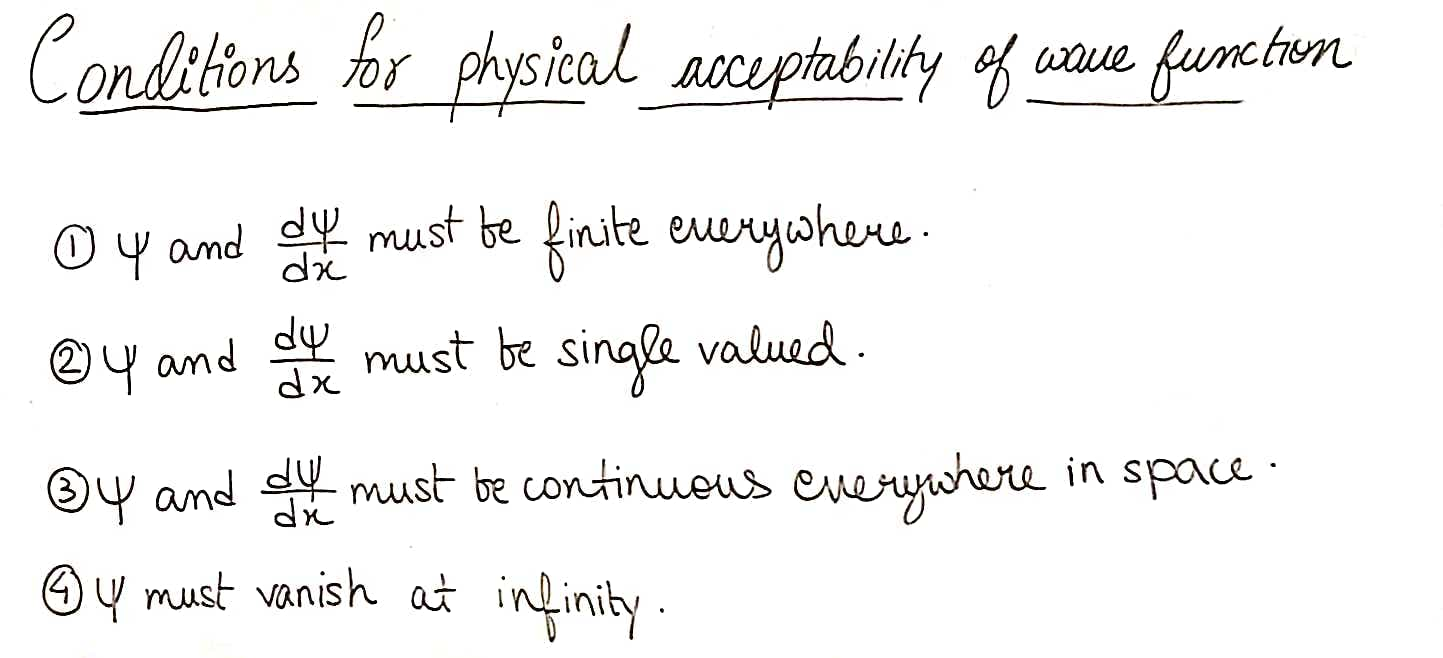 Conditions for physical acceptability of wave function
① ψ and dψ/dx must be finite everywhere.
② ψ and dψ/dx must be single valued.
③ ψ and dψ/dx must be continuous everywhere in space.
④ ψ must vanish at infinity.